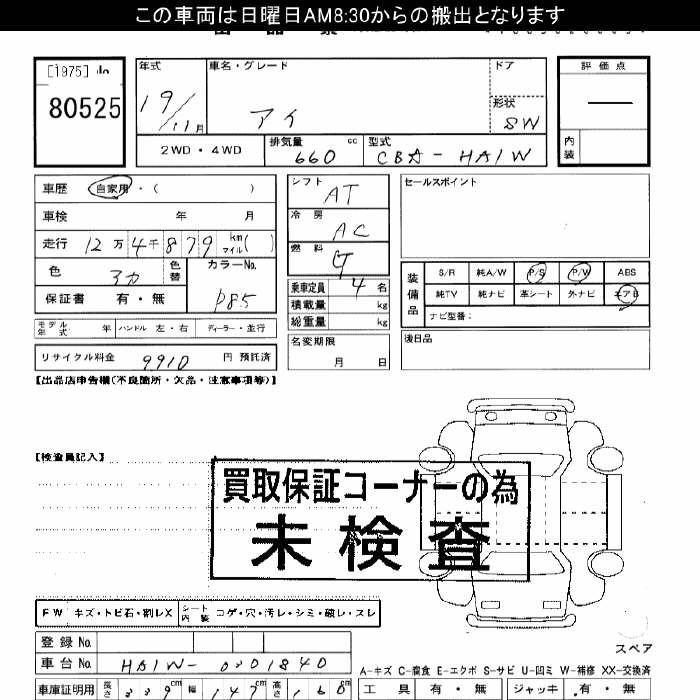 この車両は日曜日AM8:30からの搬出となります
[1975]
80525
年式 車名・グレード ドア
19/11月 アイ 形状 SW
2WD・4WD 排気量 660 cc 型式 CBA-HA1W
評価点
内装
車歴 自家用・( )
車検 年 月
走行 12万4千879 km マイル( )
色 アカ 色替 カラーNo. P85
保証書 有・無
モデル年式 年 ハンドル 左・右 ディーラー・並行
リサイクル料金 9910 円 預託済
シフト AT
冷房 AC
燃料 G
乗車定員 4 名
積載量 kg
総重量 kg
名変期限
月 日
セールスポイント
装備品 S/R 純A/W P/S P/W ABS
純TV 純ナビ 革シート 外ナビ エアB
ナビ型番:
後日品
【出品店申告欄(不良箇所・欠品・注意事項等)】
【検査員記入】
買取保証コーナーの為
未検査
FW キズ・トビ石・割レX シート内装 コゲ・穴・汚レ・シミ・破レ・スレ
登録No.
車台No. HA1W-0301840
車庫証明用 長さ 339cm 幅 147cm 高さ 160
スペア
A-キズ C-腐食 E-エクボ S-サビ U-凹ミ W-補修 XX-交換済
工具 有・無 ジャッキ 有・無